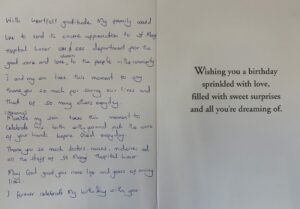 With heartfelt gratitude My family would
like to send its sincere appreciation to St Mary
Hospital Labor department for the
good care and love to the people in the community
I and my son take this moment to say
thank you so much for saving our lives and
that of so many others everyday.
my son takes this moment to
celebrate his birth with you and the work
of your hands
Thank you so much doctors, nurses, midwives and
all the staff of St Mary Hospital Labor
May God grant you more life and years of saving
lives.
I forever celebrate My birthday with you
Wishing you a birthday
sprinkled with love,
filled with sweet surprises
and all you're dreaming of.